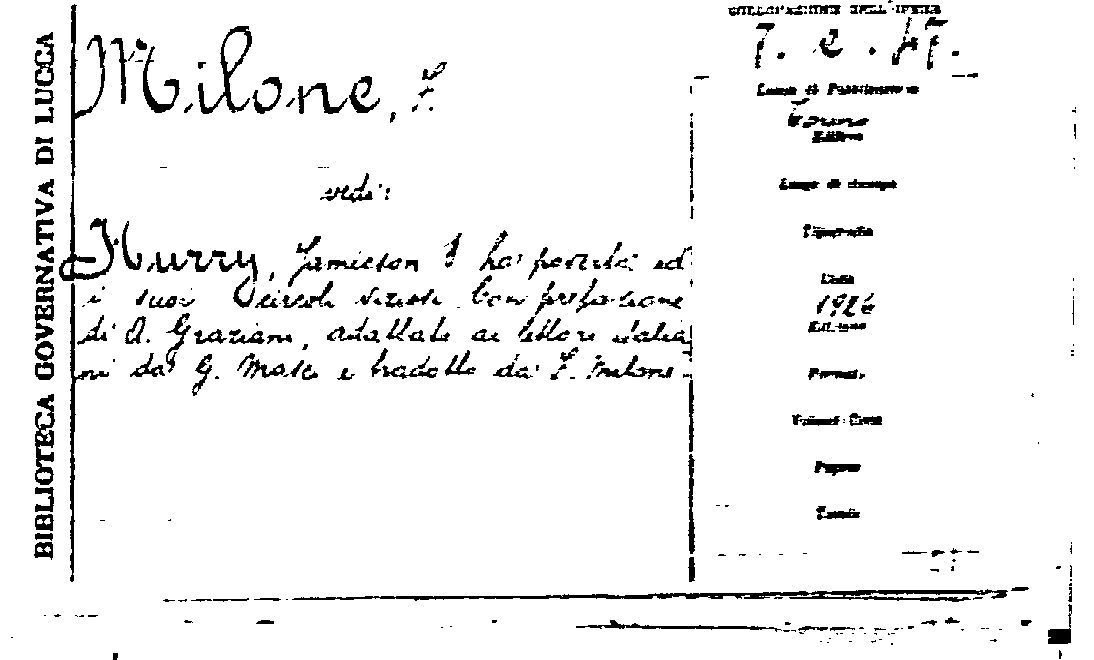 BIBLIOTECA GOVERNATIVA DI LUCCA
Milone, F.
vedi:
Hurry, Jamieson B. La povertà ed
i suoi circoli viziosi Con prefazione
di A. Graziani, adattato ai lettori italia
ni da G. e tradotto da F. Milone.
COLLOCAZIONE DELL'OPERA
7. e. 47.
Luogo di Pubblicazione
Torino
Editore
Luogo di stampa
Tipografia
Data
1926
Edizione
Formato
Volumi
Pagine
Tavole